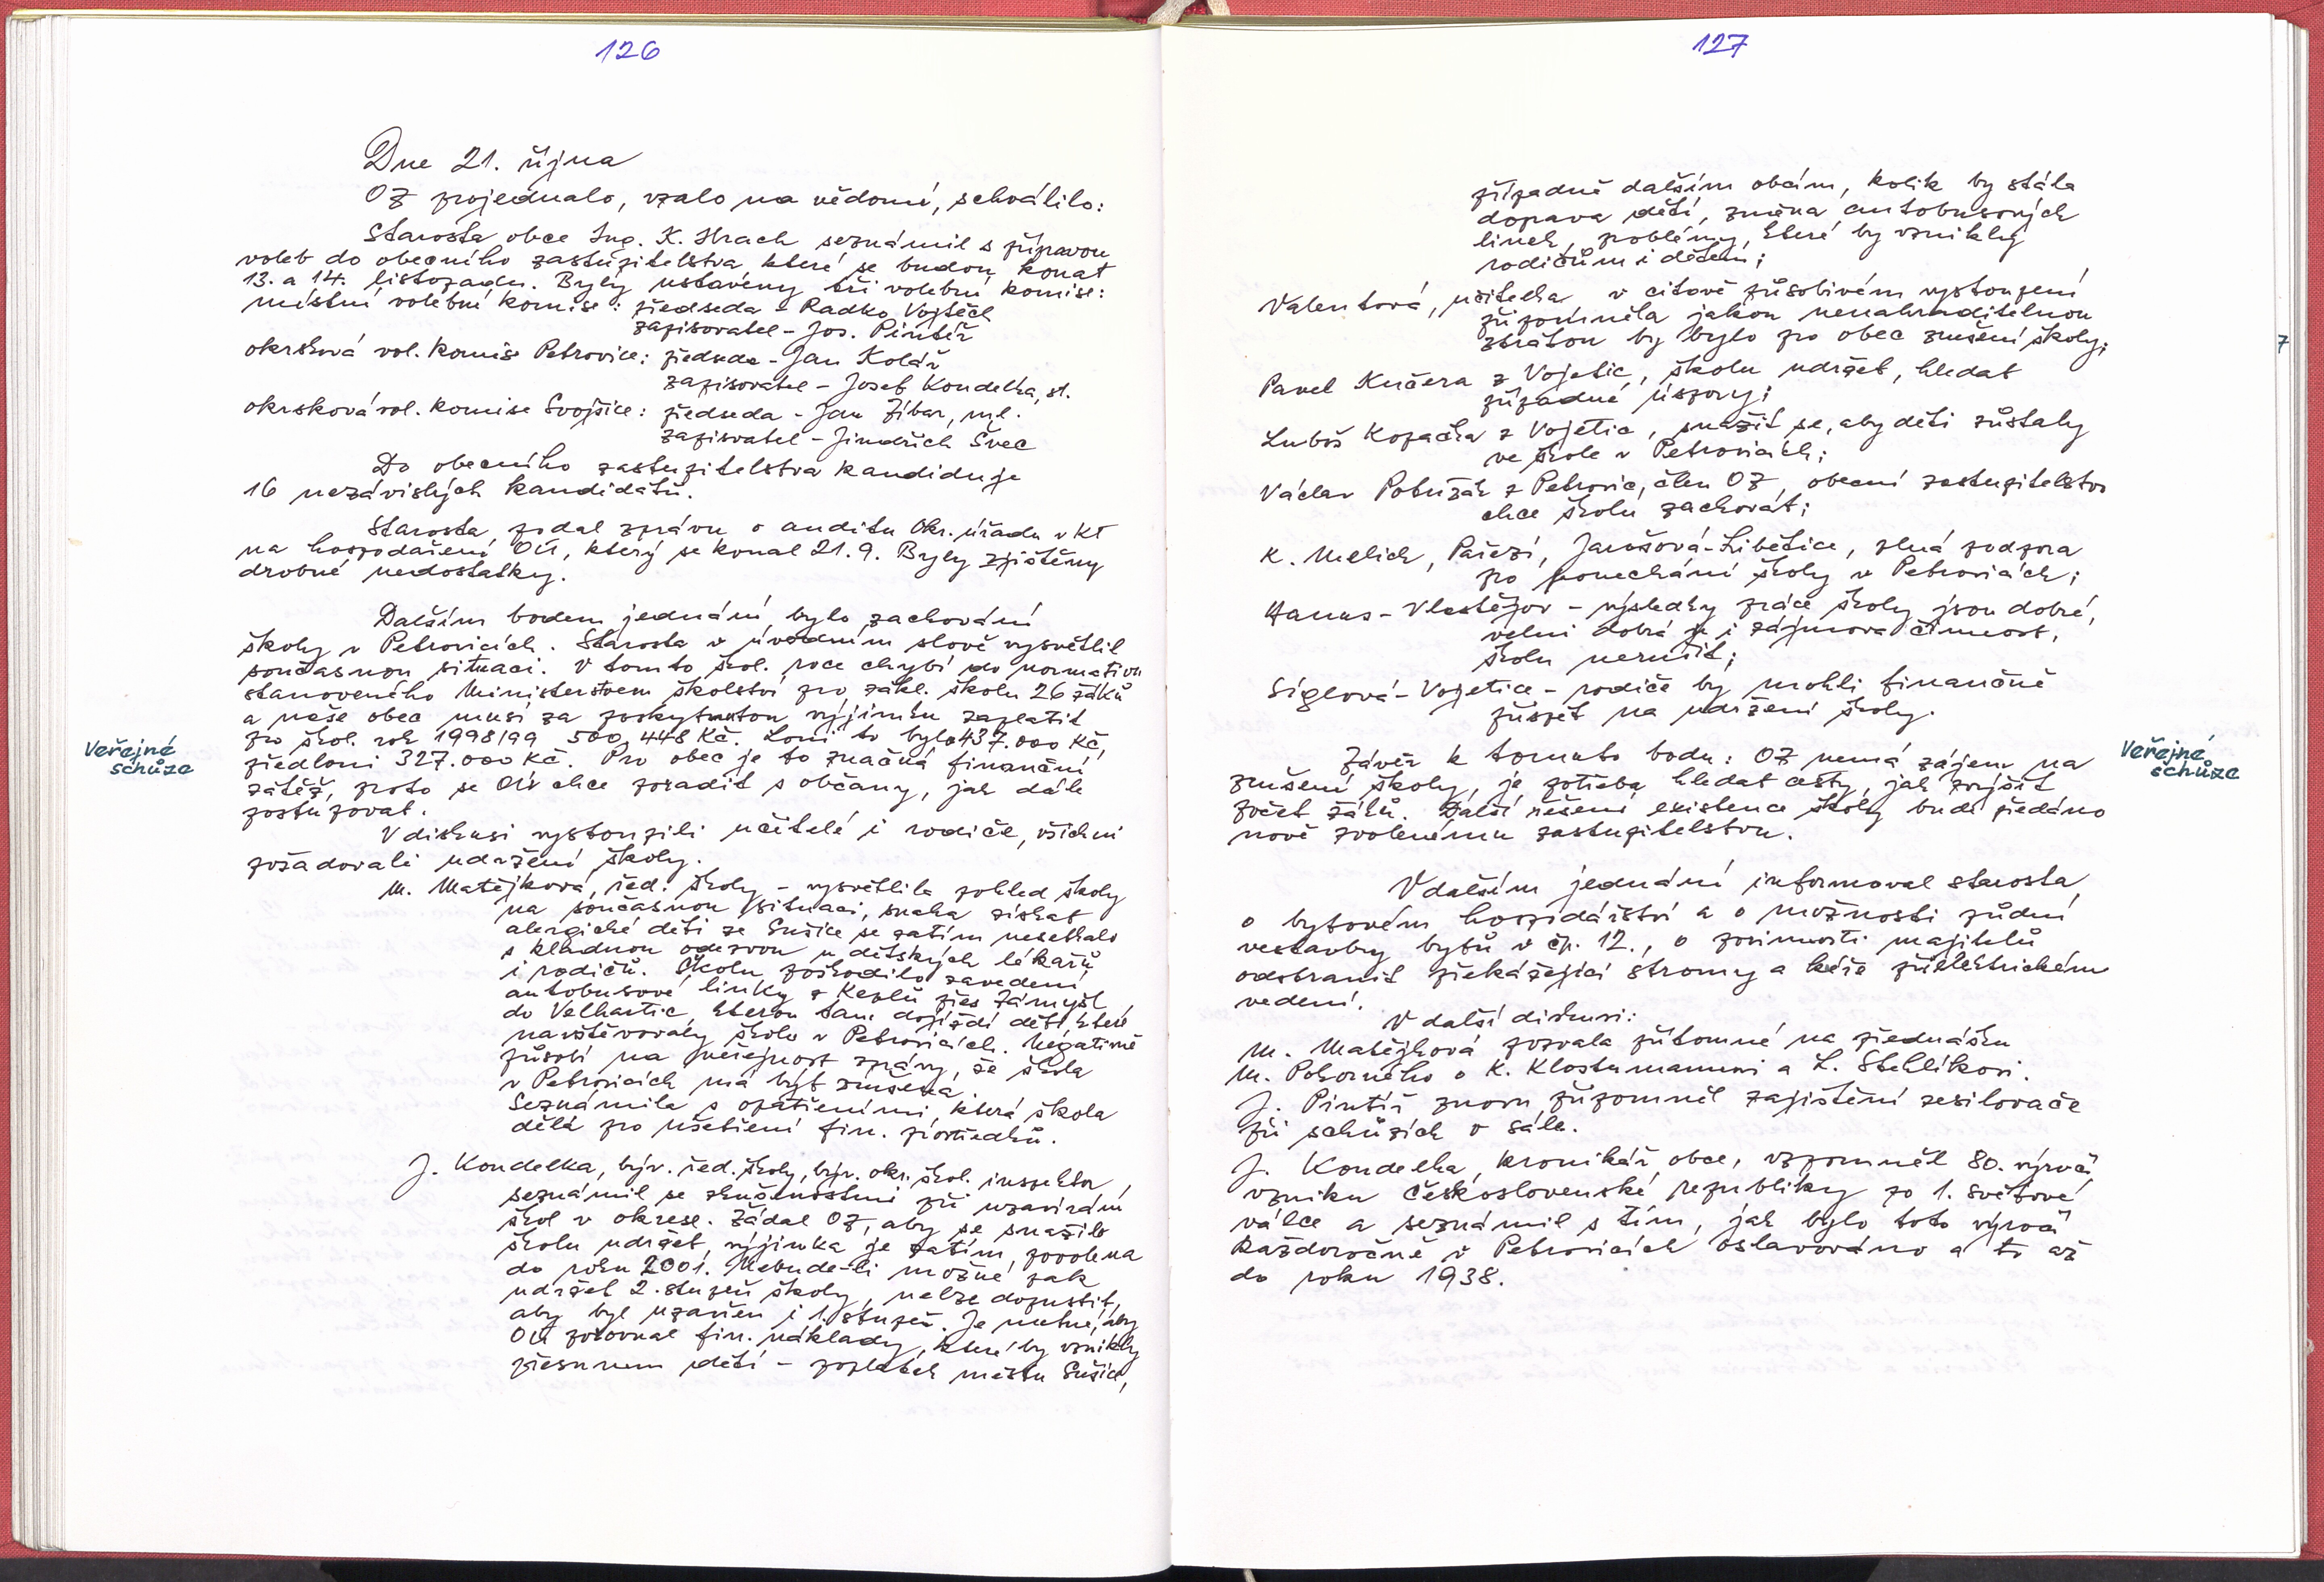 126
Dne 21. října
OZ projednalo, vzalo na vědomí, schválilo:
Starosta obce Ing. K. Hrach seznámil s přípravou
voleb do obecního zastupitelstva které se budou konat
13. a 14. listopadu. Byly ustaveny tři volební komise:
místní volební komise: předseda - Radko Vojtěch
zapisovatel - Jos. Pintíř
okrsková vol. komise Petrovice: předseda - Jan Kolář
zapisovatel - Josef Kondelka, st.
okrsková vol. komise Svojšice: předseda - Jan Žíbar, ml.
zapisovatel - Jindřich Švec
Do obecního zastupitelstva kandiduje
16 nezávislých kandidátů.
Starosta podal zprávu o auditu Okr. úřadu v KT
na hospodaření OÚ, který se konal 21.9. Byly zjištěny
drobné nedostatky.
Dalším bodem jednání bylo zachování
školy v Petrovicích. Starosta v úvodním slově vysvětlil
současnou situaci. V tomto škol. roce chybí do normativu
stanoveného Ministerstvem školství pro zákl. školu 26 žáků
a naše obec musí za poskytnutou výjimku zaplatit
pro škol. rok 1998/99 500.448 Kč. Loni to bylo 437.000 Kč,
předloni 327.000 Kč. Pro obec je to značná finanční
zátěž, proto se OÚ chce poradit s občany, jak dále
postupovat.
Veřejné
schůze
V diskusi vystoupili učitelé i rodiče, všichni
požadovali udržení školy.
M. Matějková, řed. školy - vysvětlila pohled školy
na současnou situaci, snaha získat
alergické děti ze Sušice se zatím nesetkala
s kladnou odezvou u dětských lékařů
i rodičů. Školu poškodilo zavedení
autobusové linky z Keplů přes Zámyšl
do Velhartic, kterou tam dojíždí děti které
navštěvovaly školu v Petrovicích. Negativně
působí na veřejnost zprávy, že škola
v Petrovicích má být zrušena.
Seznámila s opatřeními, která škola
dělá pro ušetření fin. prostředků.
J. Kondelka, býv. řed. školy, býv. okr. škol. inspektor,
seznámil se zkušenostmi při uzavírání
škol v okrese. Žádal OZ, aby se snažilo
školu udržet, výjimka je zatím povolena
do roku 2001. Nebude-li možné pak
udržet 2. stupeň školy, nelze dopustit,
aby byl uzavřen i 1. stupeň. Je nutné, aby
OÚ porovnal fin. náklady, které by vznikly
přesunem dětí - poplatek městu Sušice,
127
případně dalším obcím, kolik by stála
doprava dětí, změna autobusových
linek, problémy, které by vznikly
rodičům i dětem;
Valentová, učitelka v citově působivém vystoupení
připomněla jakou nenahraditelnou
ztrátou by bylo pro obec zrušení školy;
Pavel Kučera z Vojetic, školu udržet, hledat
případné úspory;
Luboš Kopačka z Vojetic, snažit se, aby děti zůstaly
ve škole v Petrovicích;
Václav Potužák z Petrovic, člen OZ, obecní zastupitelstvo
chce školu zachovat;
K. Melich, Pařezí, Jarošová-Libětice, plná podpora
pro ponechání školy v Petrovicích;
Hanus - Vlastějov - výsledky práce školy jsou dobré,
velmi dobrá je i zájmová činnost,
školu nerušit;
Siglová - Vojetice - rodiče by mohli finančně
přispět na udržení školy.
Závěr k tomuto bodu: OZ nemá zájem na
zrušení školy, je potřeba hledat cesty, jak zvýšit
počet žáků. Další řešení existence školy bude předáno
nově zvolenému zastupitelstvu.
Veřejné
schůze
V dalším jednání informoval starosta
o bytovém hospodářství a o možnosti půdní
vestavby bytů v čp. 12., o povinnosti majitelů
odstranit překážející stromy a keře při elektrickém
vedení.
V další diskusi:
M. Matějková pozvala přítomné na přednášku
M. Pohorného o K. Klostermannovi a L. Stehlíkovi.
J. Pintíř znovu připomněl zajištění zesilovače
při schůzích v sále.
J. Kondelka, kronikář obce, vzpomněl 80. výročí
vzniku Československé republiky po 1. světové
válce a seznámil s tím, jak bylo toto výročí
každoročně v Petrovicích oslavováno a to až
do roku 1938.
7